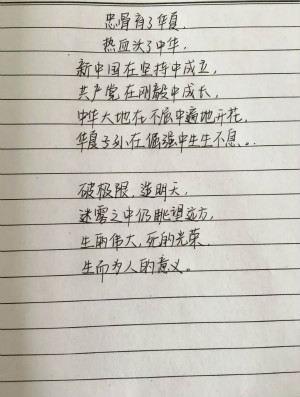 忠骨有了华夏,
热血沃了中华,
新中国在坚持中成立,
共产党在刚毅中成长,
中华大地在不屈中遍地开花,
华夏子孙在倔强中生生不息...
破极限,造明天,
迷雾之中仍眺望远方,
生的伟大,死的光荣,
生而为人的意义。